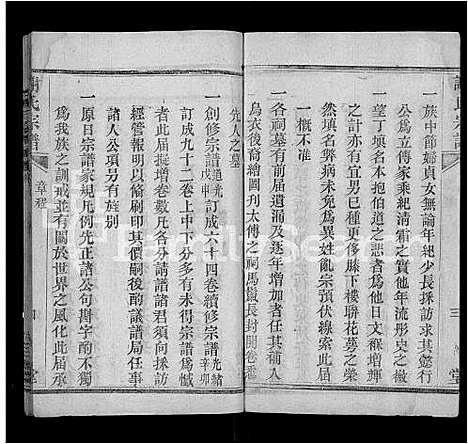 一族中節婦貞女無論年紀少長採訪求其懿行
公為立傳家乘紀清霜之質他年流彤史之徽
一望丁填名本抱伯道之悲者為他日文褓增安
之計亦有宜男已種更侈膝下棲聯花萼之榮
然填名弊病未免為異姓亂宗晴索此
一概不准
一各祠墓有前屆遺漏及逐年增加者任其補入
烏衣後裔繪圖刋太傅之祠馬鬣長封開卷
先人之墓
一創修宗譜道光戊申訂成六十四卷續修宗譜光緒辛卯
訂成九十二卷上中下分多有以未得宗譜為憾
者此屆擬增卷數凡各分請譜諸君須向採訪
經管報明以條刷印其價嗣後酌議譜局
諸人公項另有旌別
一原日宗譜家規凡例先正諸公句斟字酌不獨
為我族之訓戒並有關於世界之風化此屆承
謝氏宗譜
章程
堂
謝氏宗
三
堂